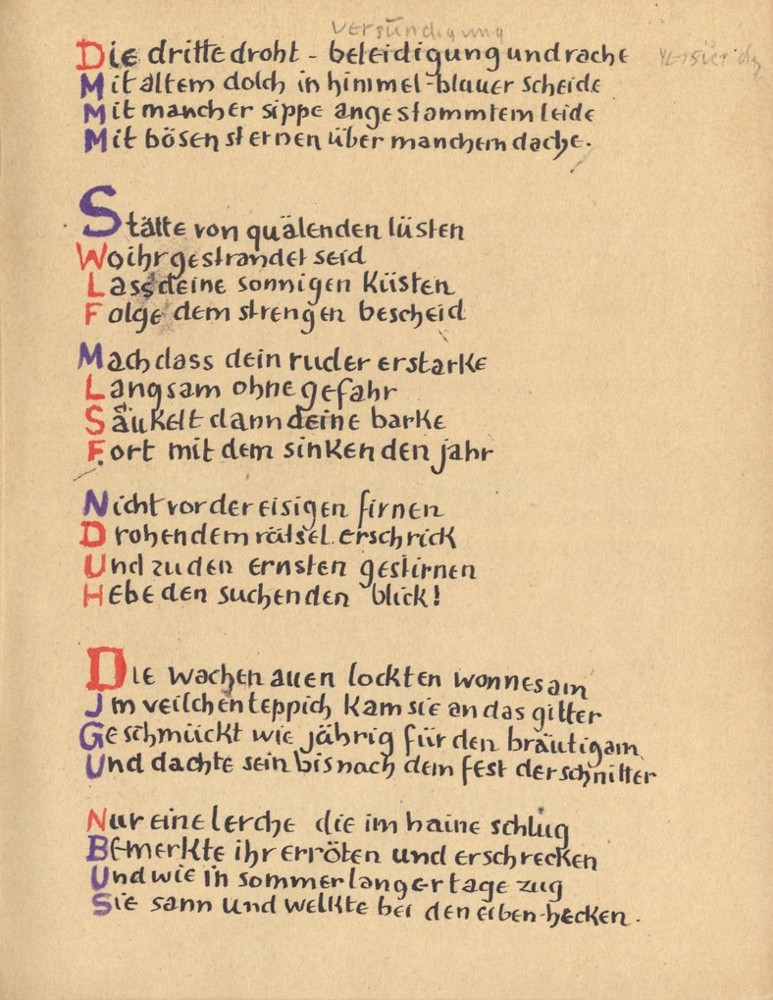 versündigung
Die dritte droht - beleidigung und rache
Mit altem dolch in himmel-blauer scheide
Mit mancher sippe angestammtem leide
Mit bösen sternen über manchem dache.
Stätte von quälenden lüsten
Wo ihr gestrandet seid
Lass deine sonnigen Küsten
Folge dem strengen bescheid
Mach dass dein ruder erstarke
Langsam ohne gefahr
Säukelt dann deine barke
Fort mit dem sinkenden jahr
Nicht vor der eisigen firnen
Drohendem rätsel erschrick
Und zu den ernsten gestirnen
Hebe den suchenden blick!
Die wachen auen lockten wonnesam
Im veilchenteppich kam sie an das gitter
Geschmückt wie jährig für den bräutigam
Und dachte sein bis nach dem fest der schnitter
Nur eine lerche die im haine schlug
Bemerkte ihr erröten und erschrecken
Und wie in sommerlanger tage zug
Sie sann und welkte bei den eiben-hecken.